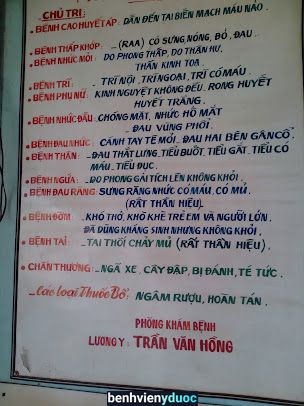 CHỦ TRỊ:
• BỆNH CAO HUYẾT ÁP: DẪN ĐẾN TAI BIẾN MẠCH MÁU NÃO.
• BỆNH THẤP KHỚP: - (RAA) CÓ SƯNG, NÓNG, ĐỎ, ĐAU.
• BỆNH NHỨC MỎI: DO PHONG THẤP, DO THẬN HƯ,
THẦN KINH TỌA.
• BỆNH TRĨ: - TRĨ NỘI, TRĨ NGOẠI, TRĨ CÓ MÁU.
• BỆNH PHỤ NỮ: KINH NGUYỆT KHÔNG ĐỀU. RONG HUYẾT
HUYẾT TRẮNG.
• BỆNH NHỨC ĐẦU: CHÓNG MẶT, NHỨC HỐ MẮT
- ĐAU VÙNG PHỔI.
• BỆNH ĐAU NHỨC: CÁNH TAY TÊ MỎI, ĐAU HAI BÊN GÂN CỔ.
• BỆNH THẬN: - ĐAU THẮT LƯNG, TIỂU BUỐT, TIỂU GẮT, TIỂU CÓ
MÁU, TIỂU ĐỤC.
• BỆNH NGỨA: - DO PHONG GẢI TÍCH LÊN KHÔNG KHỎI.
• BỆNH ĐAU RĂNG: SƯNG RĂNG NHỨC CÓ MÁU, CÓ MỦ.
(RẤT THẦN HIỆU).
• BỆNH ĐỜM: - KHÓ THỞ, KHÒ KHÈ TRẺ EM VÀ NGƯỜI LỚN.
ĐÃ DÙNG KHÁNG SINH NHƯNG KHÔNG KHỎI.
• BỆNH TAI: - TAI THỐI CHẢY MỦ (RẤT THẦN HIỆU).
• CHẤN THƯƠNG: - NGÃ XE, CÂY ĐẬP, BỊ ĐÁNH, TÉ TỨC.
- Các loại Thuốc Bổ: NGÂM RƯỢU, HOÀN TÁN.
PHÒNG KHÁM BỆNH
LƯƠNG Y: TRẦN VĂN HỒNG
benhvienyduoc